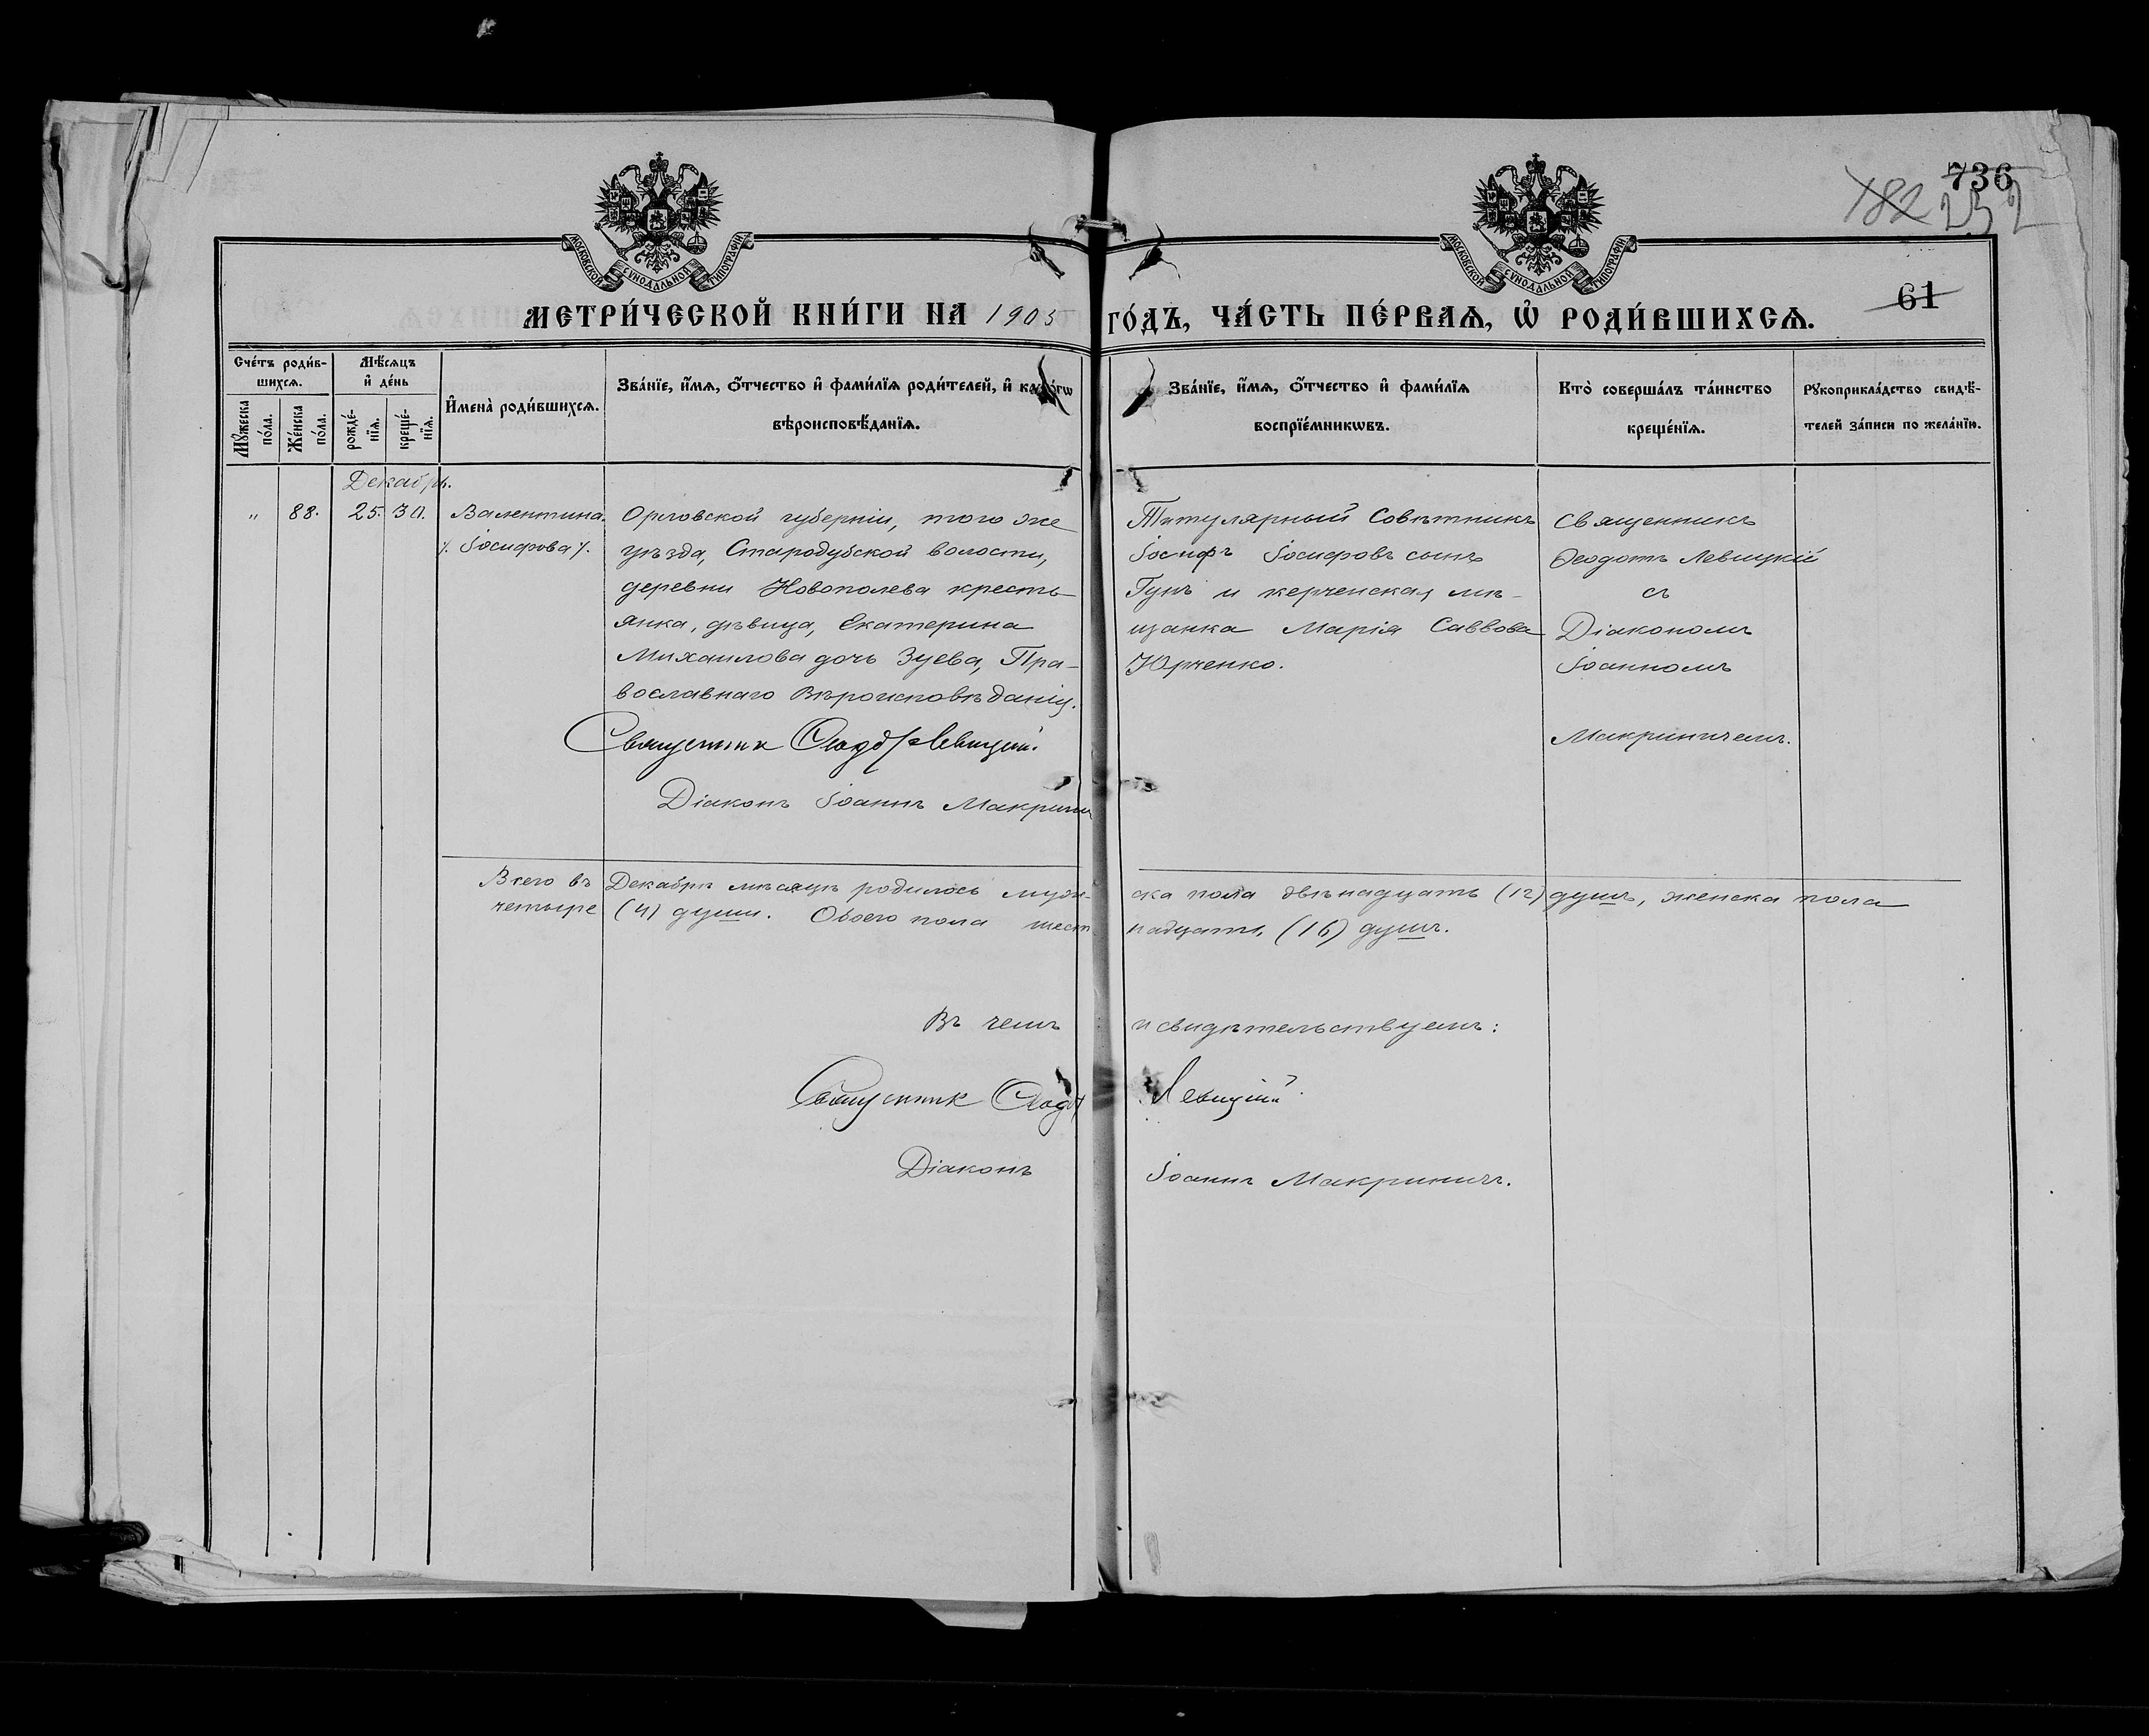 736
182 252
61
МОСКОВСКОЙ СѴНОДАЛЬНОЙ ТИПОГРАФІИ.
МОСКОВСКОЙ СѴНОДАЛЬНОЙ ТИПОГРАФІИ.
МЕТРИ́ЧЕСКОЙ КНИ́ГИ НА 1905 ГО́ДЪ, ЧА́СТЬ ПЕ́РВАѦ, Ѡ҆ РОДИ́ВШИХСѦ.
Сче́тъ роди́в-
шихсѧ.
Мꙋ́жеска по́ла.
Же́нска по́ла.
Мѣ́сѧцъ
и҆ де́нь
рожде́-нїѧ.
креще́-нїѧ.
И҆мена̀ роди́вшихсѧ.
Зва́нїе, и҆́мѧ, ѻ҆́тчество и҆ фами́лїѧ роди́телей, и҆ како́гѡ
вѣроисповѣ́данїѧ.
Зва́нїе, и҆́мѧ, ѻ҆́тчество и҆ фами́лїѧ
воспрїе́мникѡвъ.
Кто̀ соверша́лъ та́инство
креще́нїѧ.
Рꙋкоприкла́дство свидѣ́-
телей за́писи по жела́нїю.
Декабрь.
" 88. 25. 30. Валентина.
/. Іосифова /.
Орловской губерніи, того же
уѣзда, Стародубской волости,
деревни Новополева кресть-
янка, дѣвица, Екатерина
Михаилова дочь Зуева, Пра-
вославнаго Вѣроисповѣданія.
Священник Феодот Левицкий.
Діаконъ Іоаннъ Макринич
Титулярный Совѣтникъ
Іосифъ Іосифовъ сынъ
Гунъ и керченская мѣ-
щанка Марія Саввова
Юрченко.
Священникъ
Ѳеодотъ Левицкій
съ
Діакономъ
Іоанномъ
Макриничемъ.
Всего въ Декабрѣ мѣсяцѣ родилось муже-ска пола двѣнадцать (12) душъ, женска пола
четыре (4) души. Обоего пола шест-надцать (16) душъ.
Въ чемъ и свидѣтельствуемъ:
Священник Феодот Левицкий.
Діаконъ Іоаннъ Макриничъ.